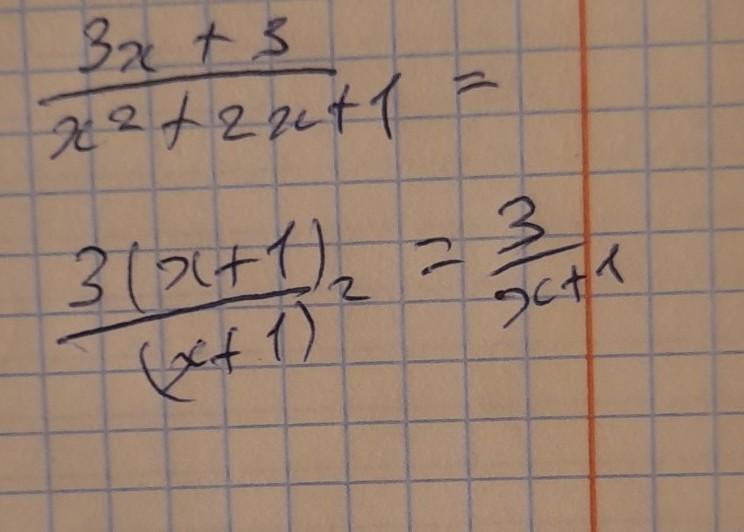 (3x + 3)/(x² + 2x + 1) =
3(x+1)/(x+1)² = 3/(x+1)